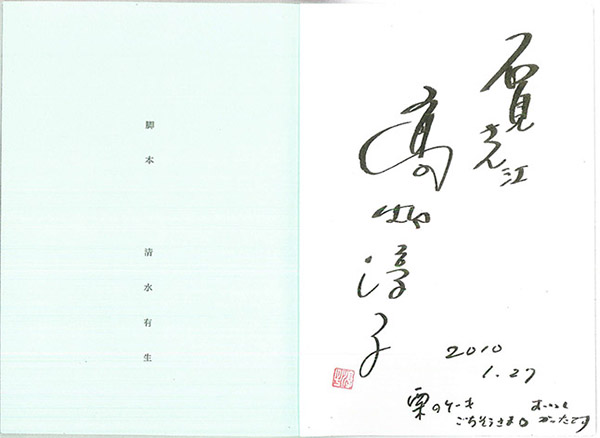 脚本 清水有生
石見さん江
高畑淳子
2010
1.27
栗のケーキ
ごちそうさま。
おいし
かったです